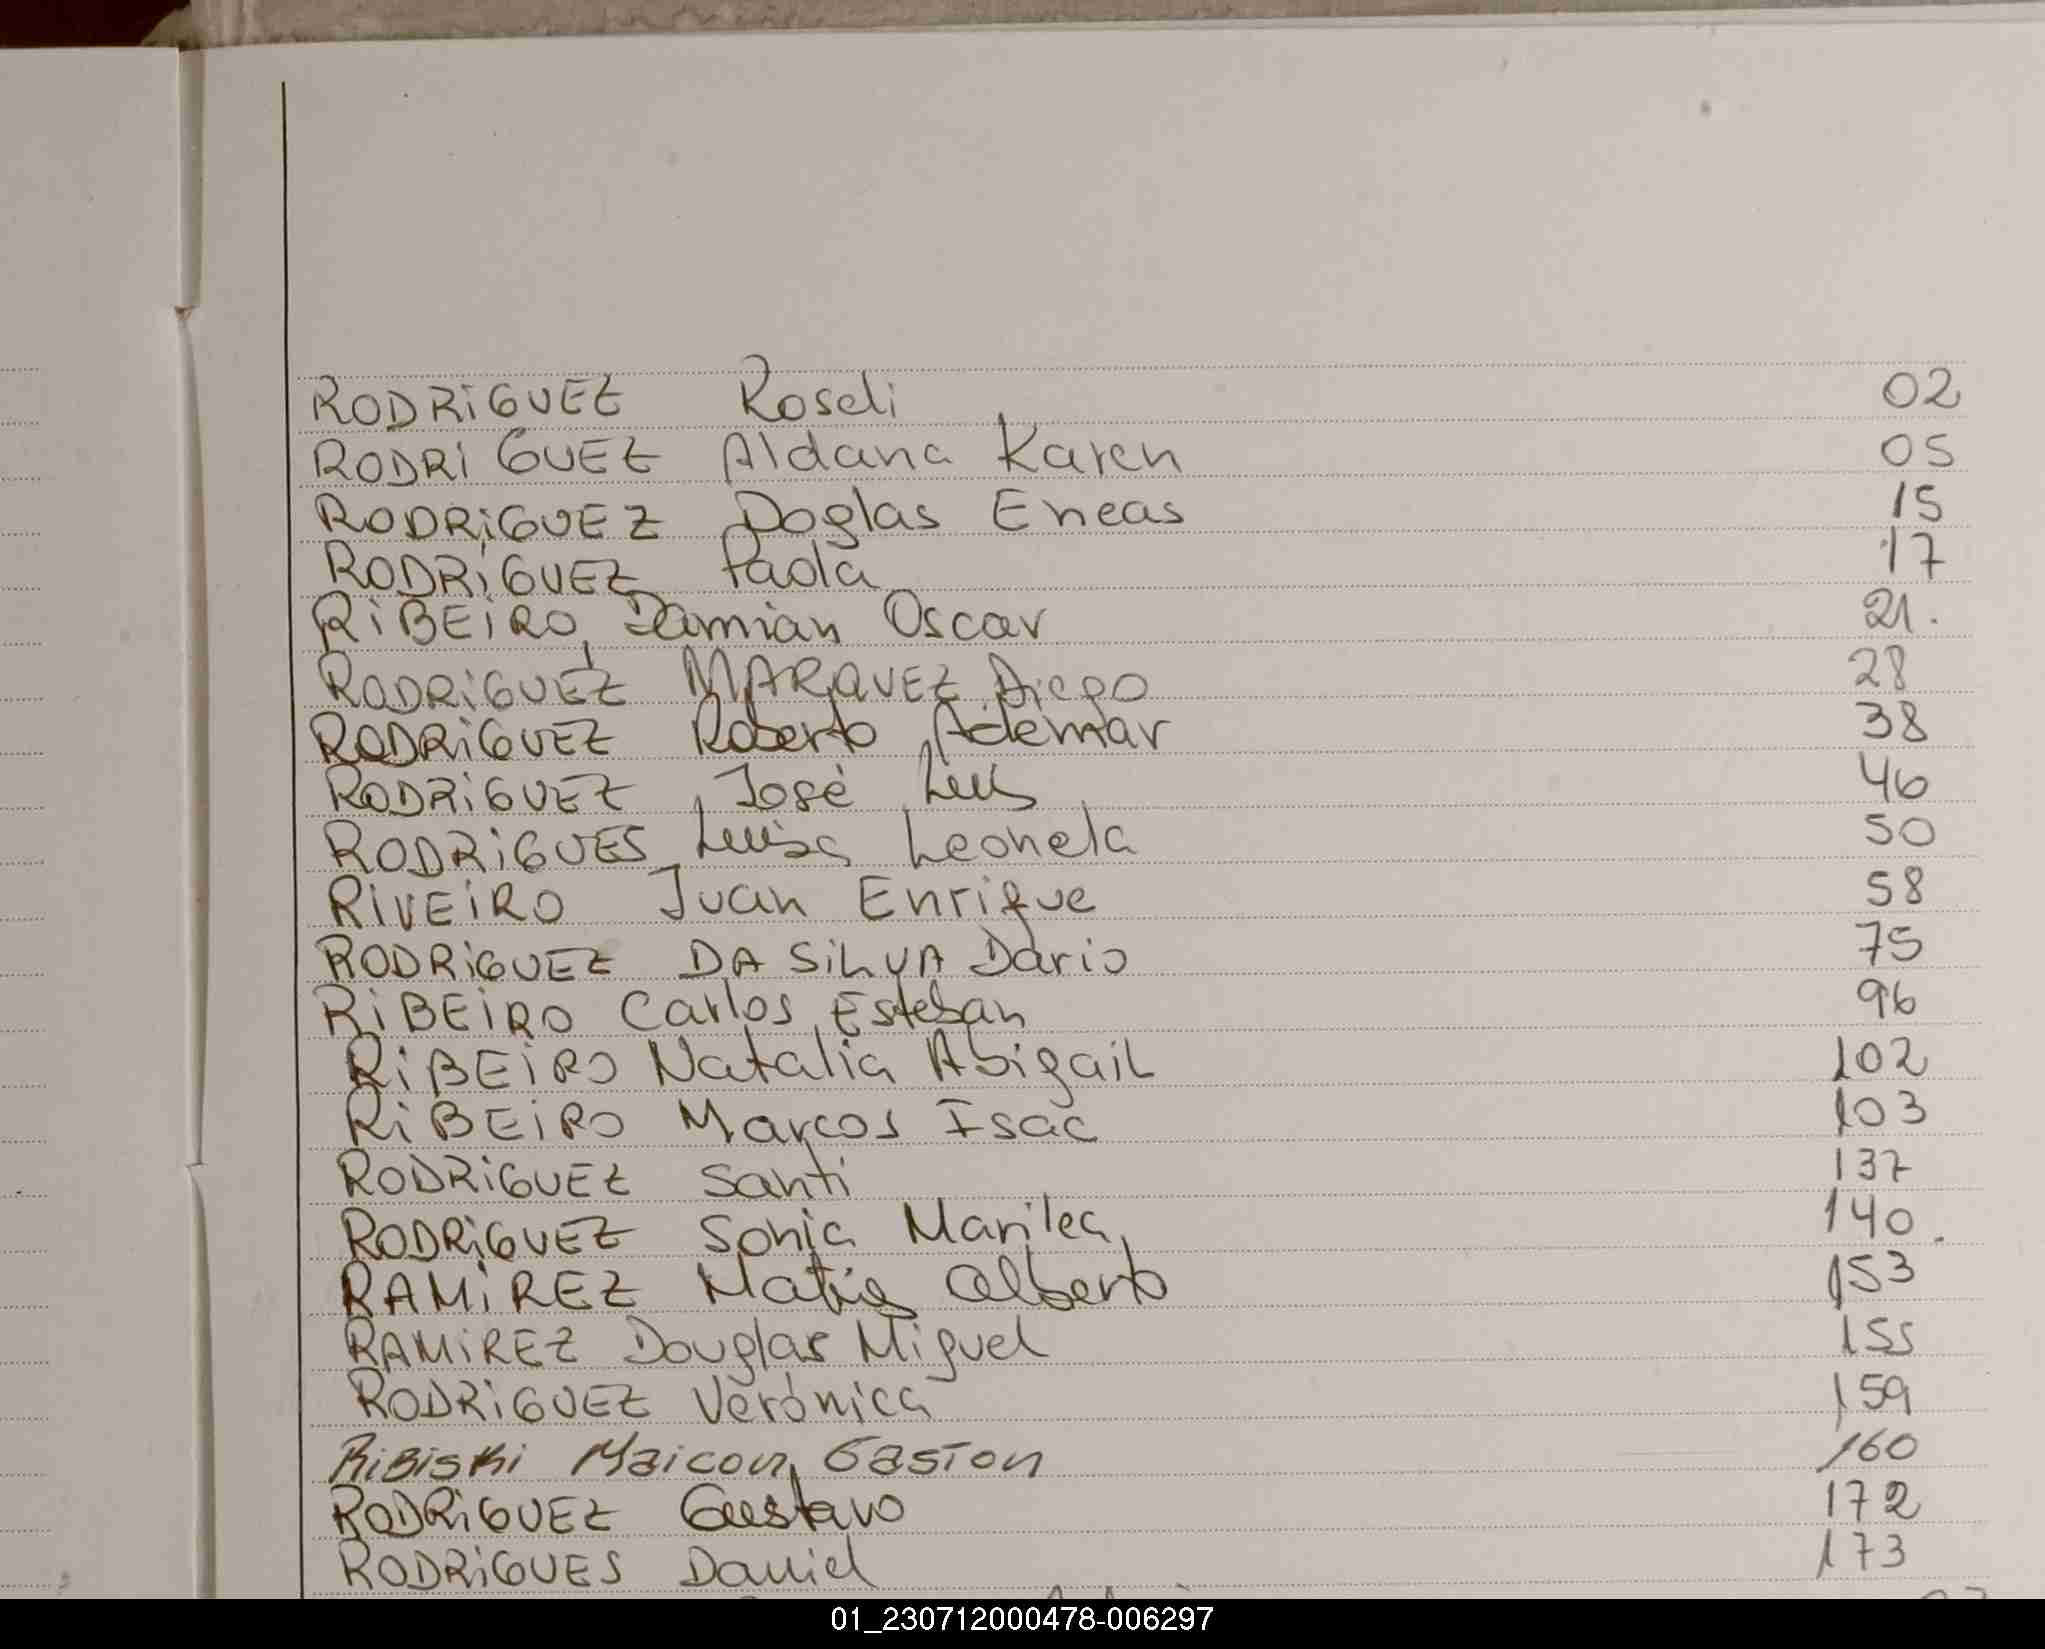 RODRIGUEZ Roseli 02
RODRIGUEZ Aldana Karen 05
RODRIGUEZ Doglas Eneas 15
RODRIGUEZ Paola 17
RIBEIRO Damián Oscar 21.
RODRIGUEZ MARQUEZ Diego 28
RODRIGUEZ Roberto Ademar 38
RODRIGUEZ José Luis 46
RODRIGUES Luisa Leonela 50
RIVEIRO Juan Enrique 58
RODRIGUEZ DA SILVA Dario 75
RIBEIRO Carlos Esteban 96
RIBEIRO Natalia Abigail 102
RIBEIRO Marcos Isac 103
RODRIGUEZ Santi 137
RODRIGUEZ Sonia Marilea 140.
RAMIREZ Matias Alberto 153
RAMIREZ Douglas Miguel 155
RODRIGUEZ Verónica 159
RIBISKI Maicon Gaston 160
RODRIGUEZ Gustavo 172
RODRIGUES Daniel 173
01_230712000478-006297